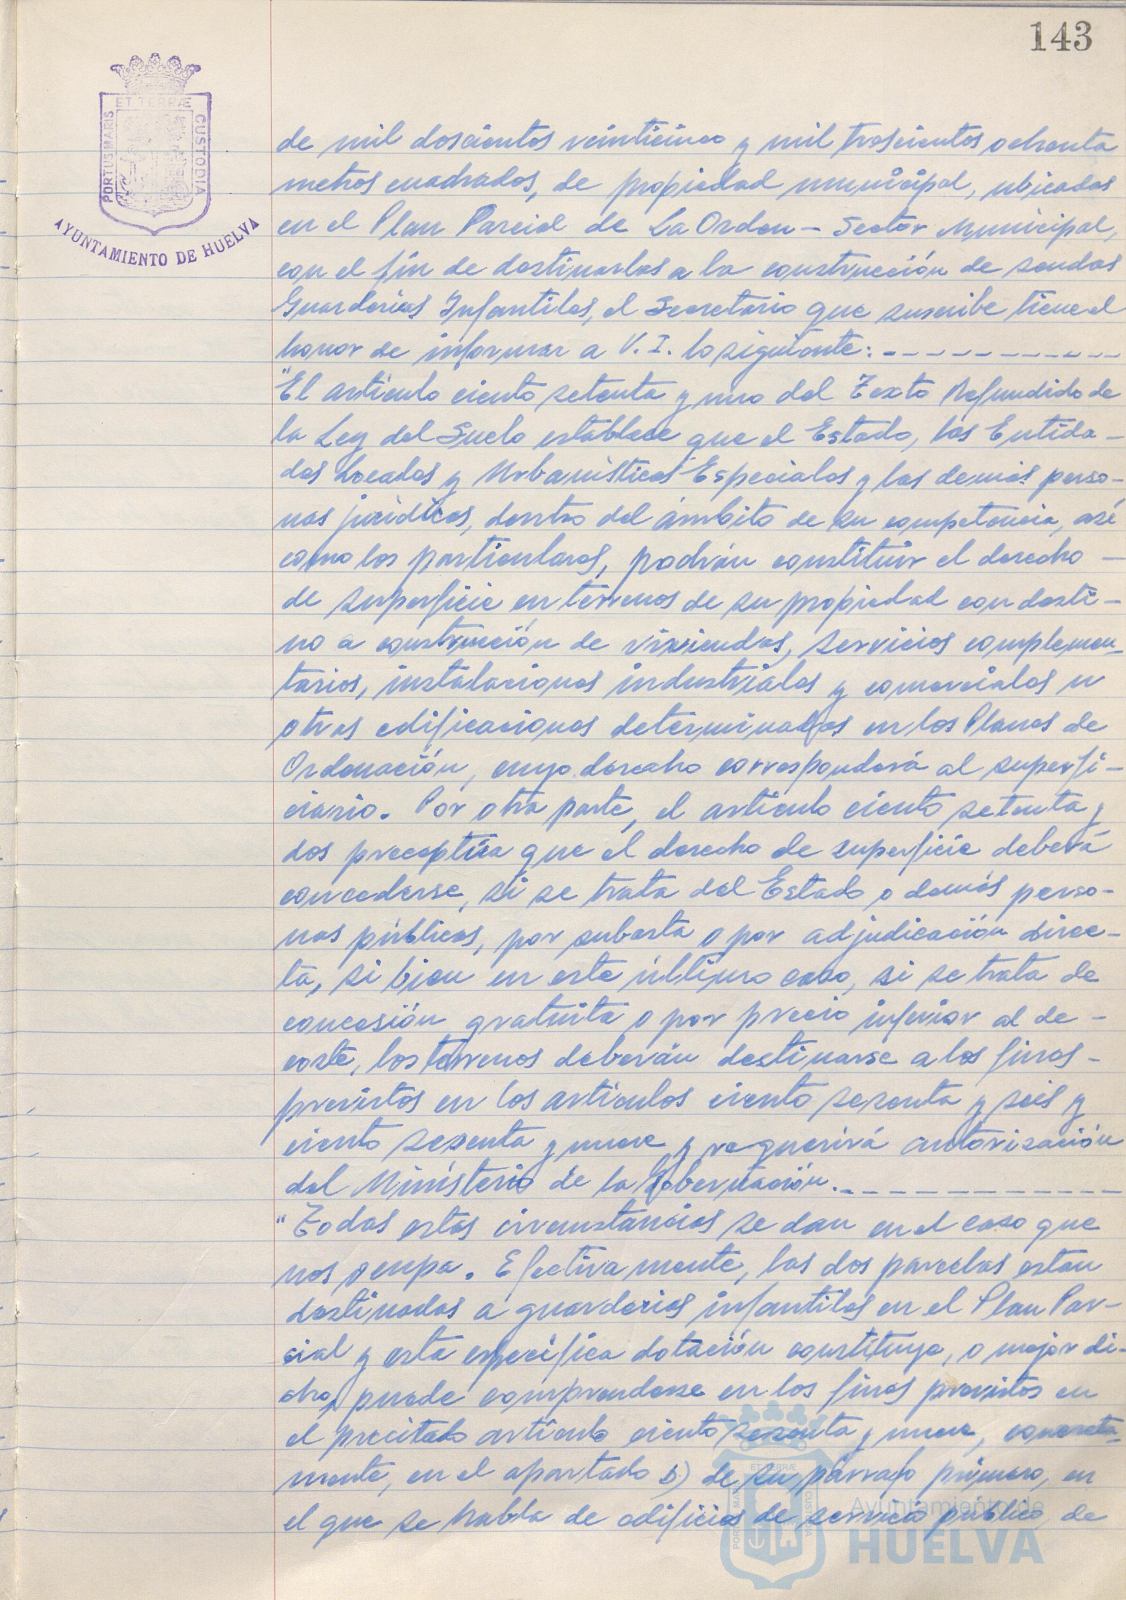 143
PORTUS MARIS ET TERRÆ CUSTODIA
AYUNTAMIENTO DE HUELVA
de mil doscientos veinticinco y mil trescientos ochenta
metros cuadrados, de propiedad municipal, ubicadas
en el Plan Parcial de La Orden - Sector Municipal,
con el fin de destinarlas a la construcción de sendas
Guarderías Infantiles, el Secretario que suscribe tiene el
honor de informar a V. I. lo siguiente: - - - - - - - - - - -
"El artículo ciento setenta y uno del Texto Refundido de
la Ley del Suelo establece que el Estado, las Entida-
des Locales y Urbanísticas Especiales y las demás perso-
nas jurídicas, dentro del ámbito de su competencia, así
como los particulares, podrán constituir el derecho -
de superficie en terrenos de su propiedad con desti-
no a construcción de viviendas, servicios complemen-
tarios, instalaciones industriales y comerciales u
otras edificaciones determinadas en los Planes de
Ordenación, cuyo derecho corresponderá al superfi-
ciario. Por otra parte, el artículo ciento setenta y
dos preceptúa que el derecho de superficie deberá
concederse, si se trata del Estado o demás perso-
nas públicas, por subasta o por adjudicación direc-
ta, si bien en este último caso, si se trata de
concesión gratuita o por precio inferior al de -
coste, los terrenos deberán destinarse a los fines -
previstos en los artículos ciento sesenta y seis y
ciento sesenta y nueve y requerirá autorización
del Ministerio de la Gobernación. - - - - - - - - - -
"Todas estas circunstancias se dan en el caso que
nos ocupa. Efectivamente, las dos parcelas estan
destinadas a guarderías infantiles en el Plan Par-
cial y esta específica dotación constituye, o mejor di-
cho, puede comprenderse en los fines previstos en
el precitado artículo ciento sesenta y nueve, concreta-
mente, en el apartado b) de su párrafo primero, en
el que se habla de edificios de servicio público, de
PORTUS MARIS ET TERRÆ CUSTODIA
Ayuntamiento de
HUELVA